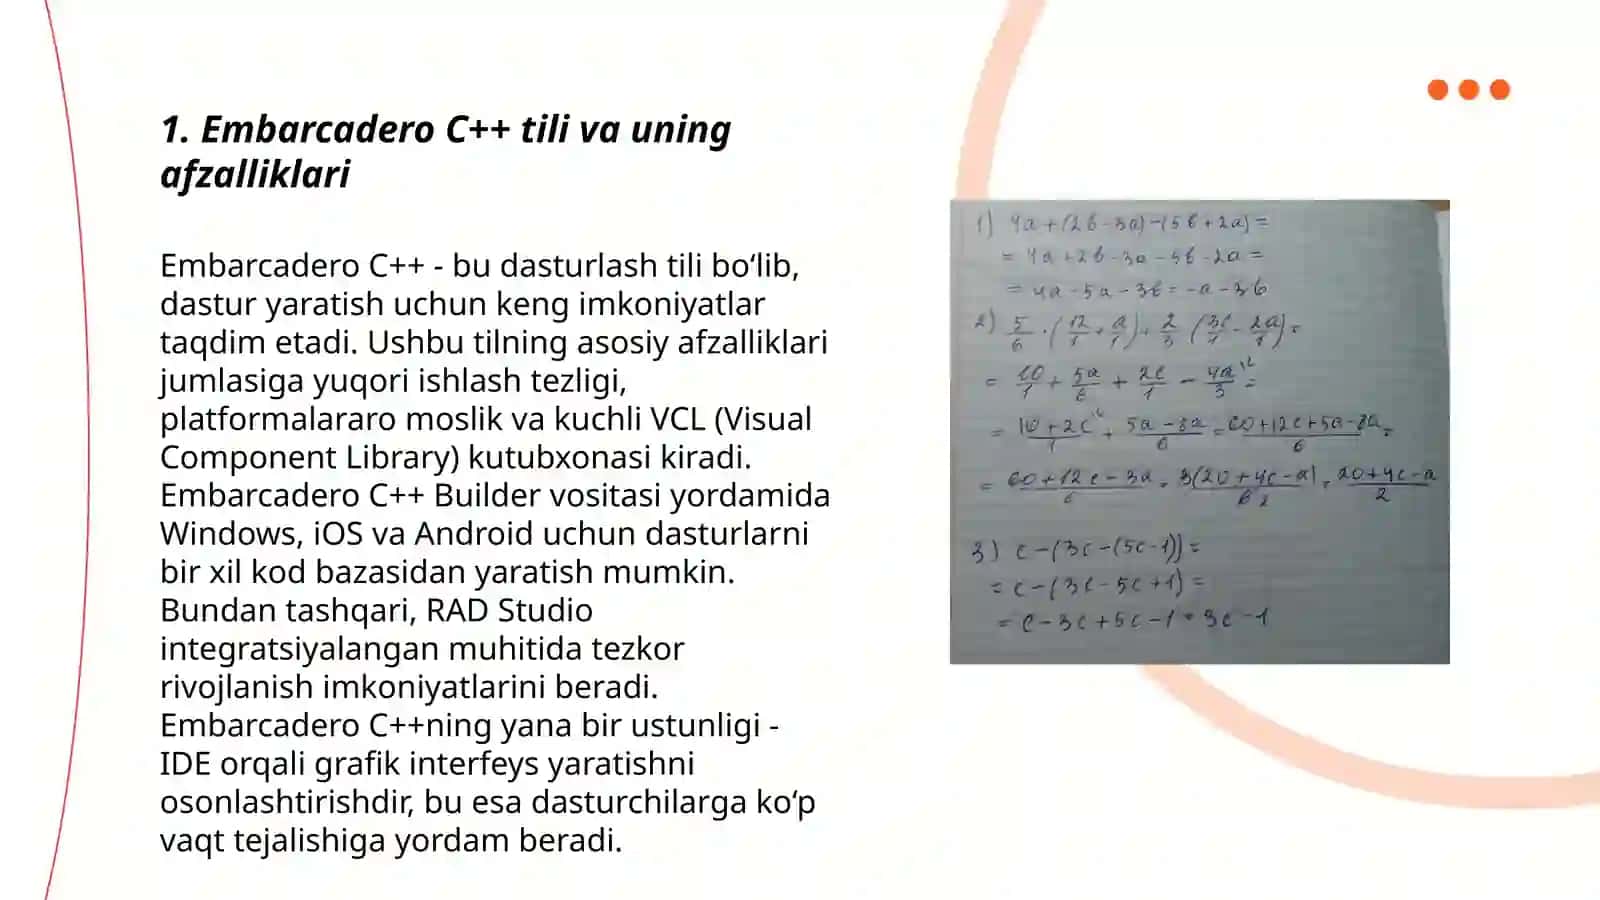 1. Embarcadero C++ tili va uning
afzalliklari
Embarcadero C++ - bu dasturlash tili bo‘lib,
dastur yaratish uchun keng imkoniyatlar
taqdim etadi. Ushbu tilning asosiy afzalliklari
jumlasiga yuqori ishlash tezligi,
platformalararo moslik va kuchli VCL (Visual
Component Library) kutubxonasi kiradi.
Embarcadero C++ Builder vositasi yordamida
Windows, iOS va Android uchun dasturlarni
bir xil kod bazasidan yaratish mumkin.
Bundan tashqari, RAD Studio
integratsiyalangan muhitida tezkor
rivojlanish imkoniyatlarini beradi.
Embarcadero C++ning yana bir ustunligi -
IDE orqali grafik interfeys yaratishni
osonlashtirishdir, bu esa dasturchilarga ko‘p
vaqt tejalishiga yordam beradi.
1) 4a+(2b-3a)-(5b+2a)=
= 4a+2b-3a-5b-2a=
= 4a-5a-3b=-a-3b
2) 5/6·(12/1+a/1)+2/3·(3c/1-2a/1)=
= 10/1+5a/6+2c/1-4a/3=
= 10+2c/1+5a-8a/6=60+12c+5a-8a/6=
= 60+12c-3a/6=3(20+4c-a)/6 2=20+4c-a/2
3) c-(3c-(5c-1))=
= c-(3c-5c+1)=
= c-3c+5c-1=3c-1